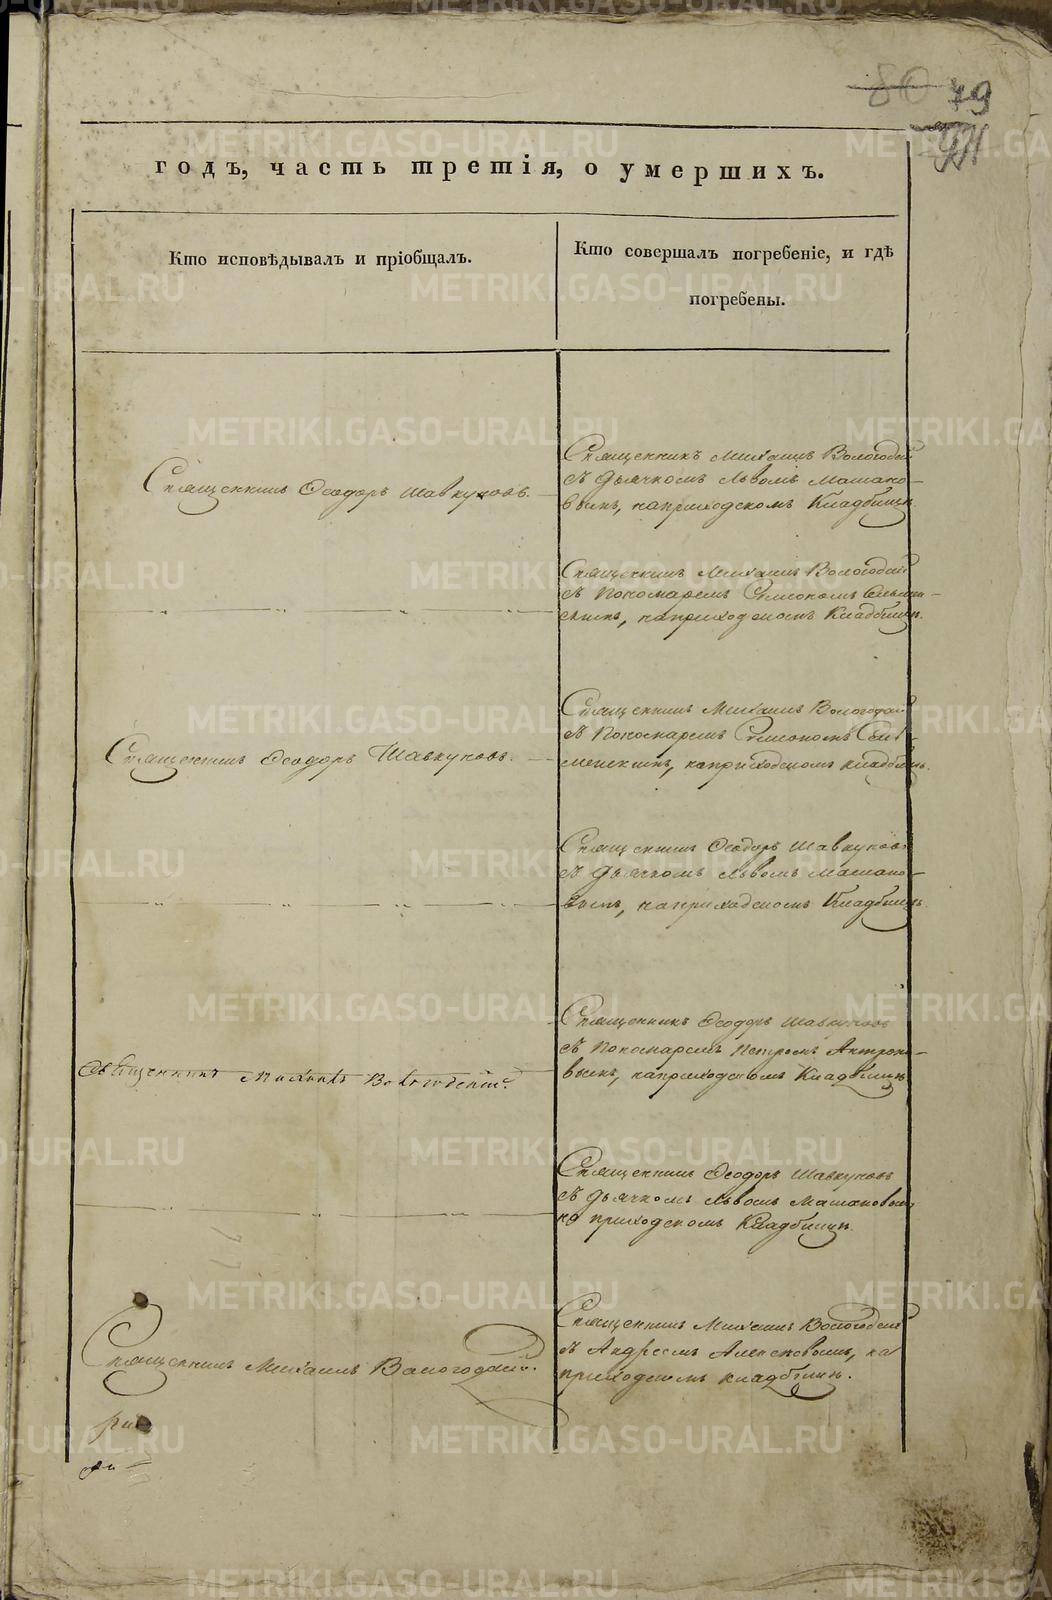 80 79
годъ, часть третія, о умершихъ.
Кто исповѣдывалъ и пріобщалъ.
Кто совершалъ погребеніе, и гдѣ
погребены.
Священникъ Ѳеодоръ Шавкуновъ.
Священникъ Михаилъ Вологодскій
съ дьячкомъ Львомъ
на приходскомъ кладбищѣ
Священникъ Михаилъ Вологодскій
съ пономаремъ Симеономъ
на приходскомъ кладбищѣ.
Священникъ Ѳеодоръ Шавкуновъ.
Священникъ Михаилъ Вологодскій
съ пономаремъ Симеономъ
на приходскомъ кладбищѣ.
Священникъ Ѳеодоръ Шавкуновъ
съ дьячкомъ Львомъ
на приходскомъ кладбищѣ.
Священникъ Михаилъ Вологодскій
Священникъ Ѳеодоръ Шавкуновъ
съ пономаремъ Петромъ Антропо-
вымъ, на приходскомъ кладбищѣ
Священникъ Ѳеодоръ Шавкуновъ
съ дьячкомъ Львомъ
на приходскомъ кладбищѣ.
Священникъ Михаилъ Вологодскій.
Священникъ Михаилъ Вологодскій
съ Андреемъ на
приходскомъ кладбищѣ.
METRIKI.GASO-URAL.RU